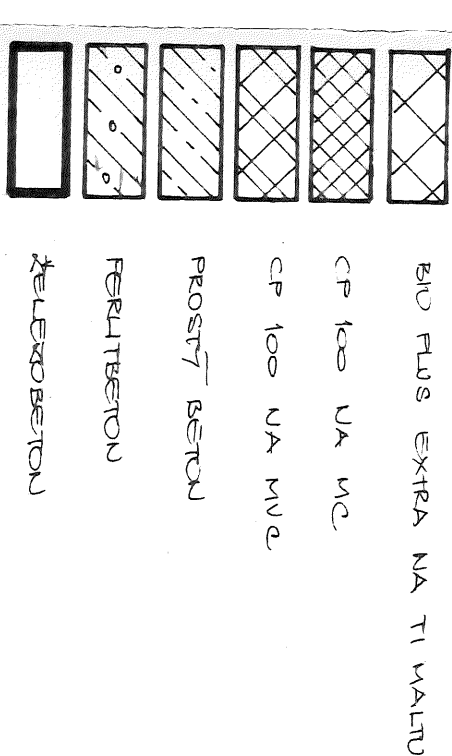 BIO PLUS EXTRA NA TI MALTU
CP 100 NA MC
CP 100 NA MVC
PROSTÝ BETON
PERLITBETON
ŽELEZOBETON